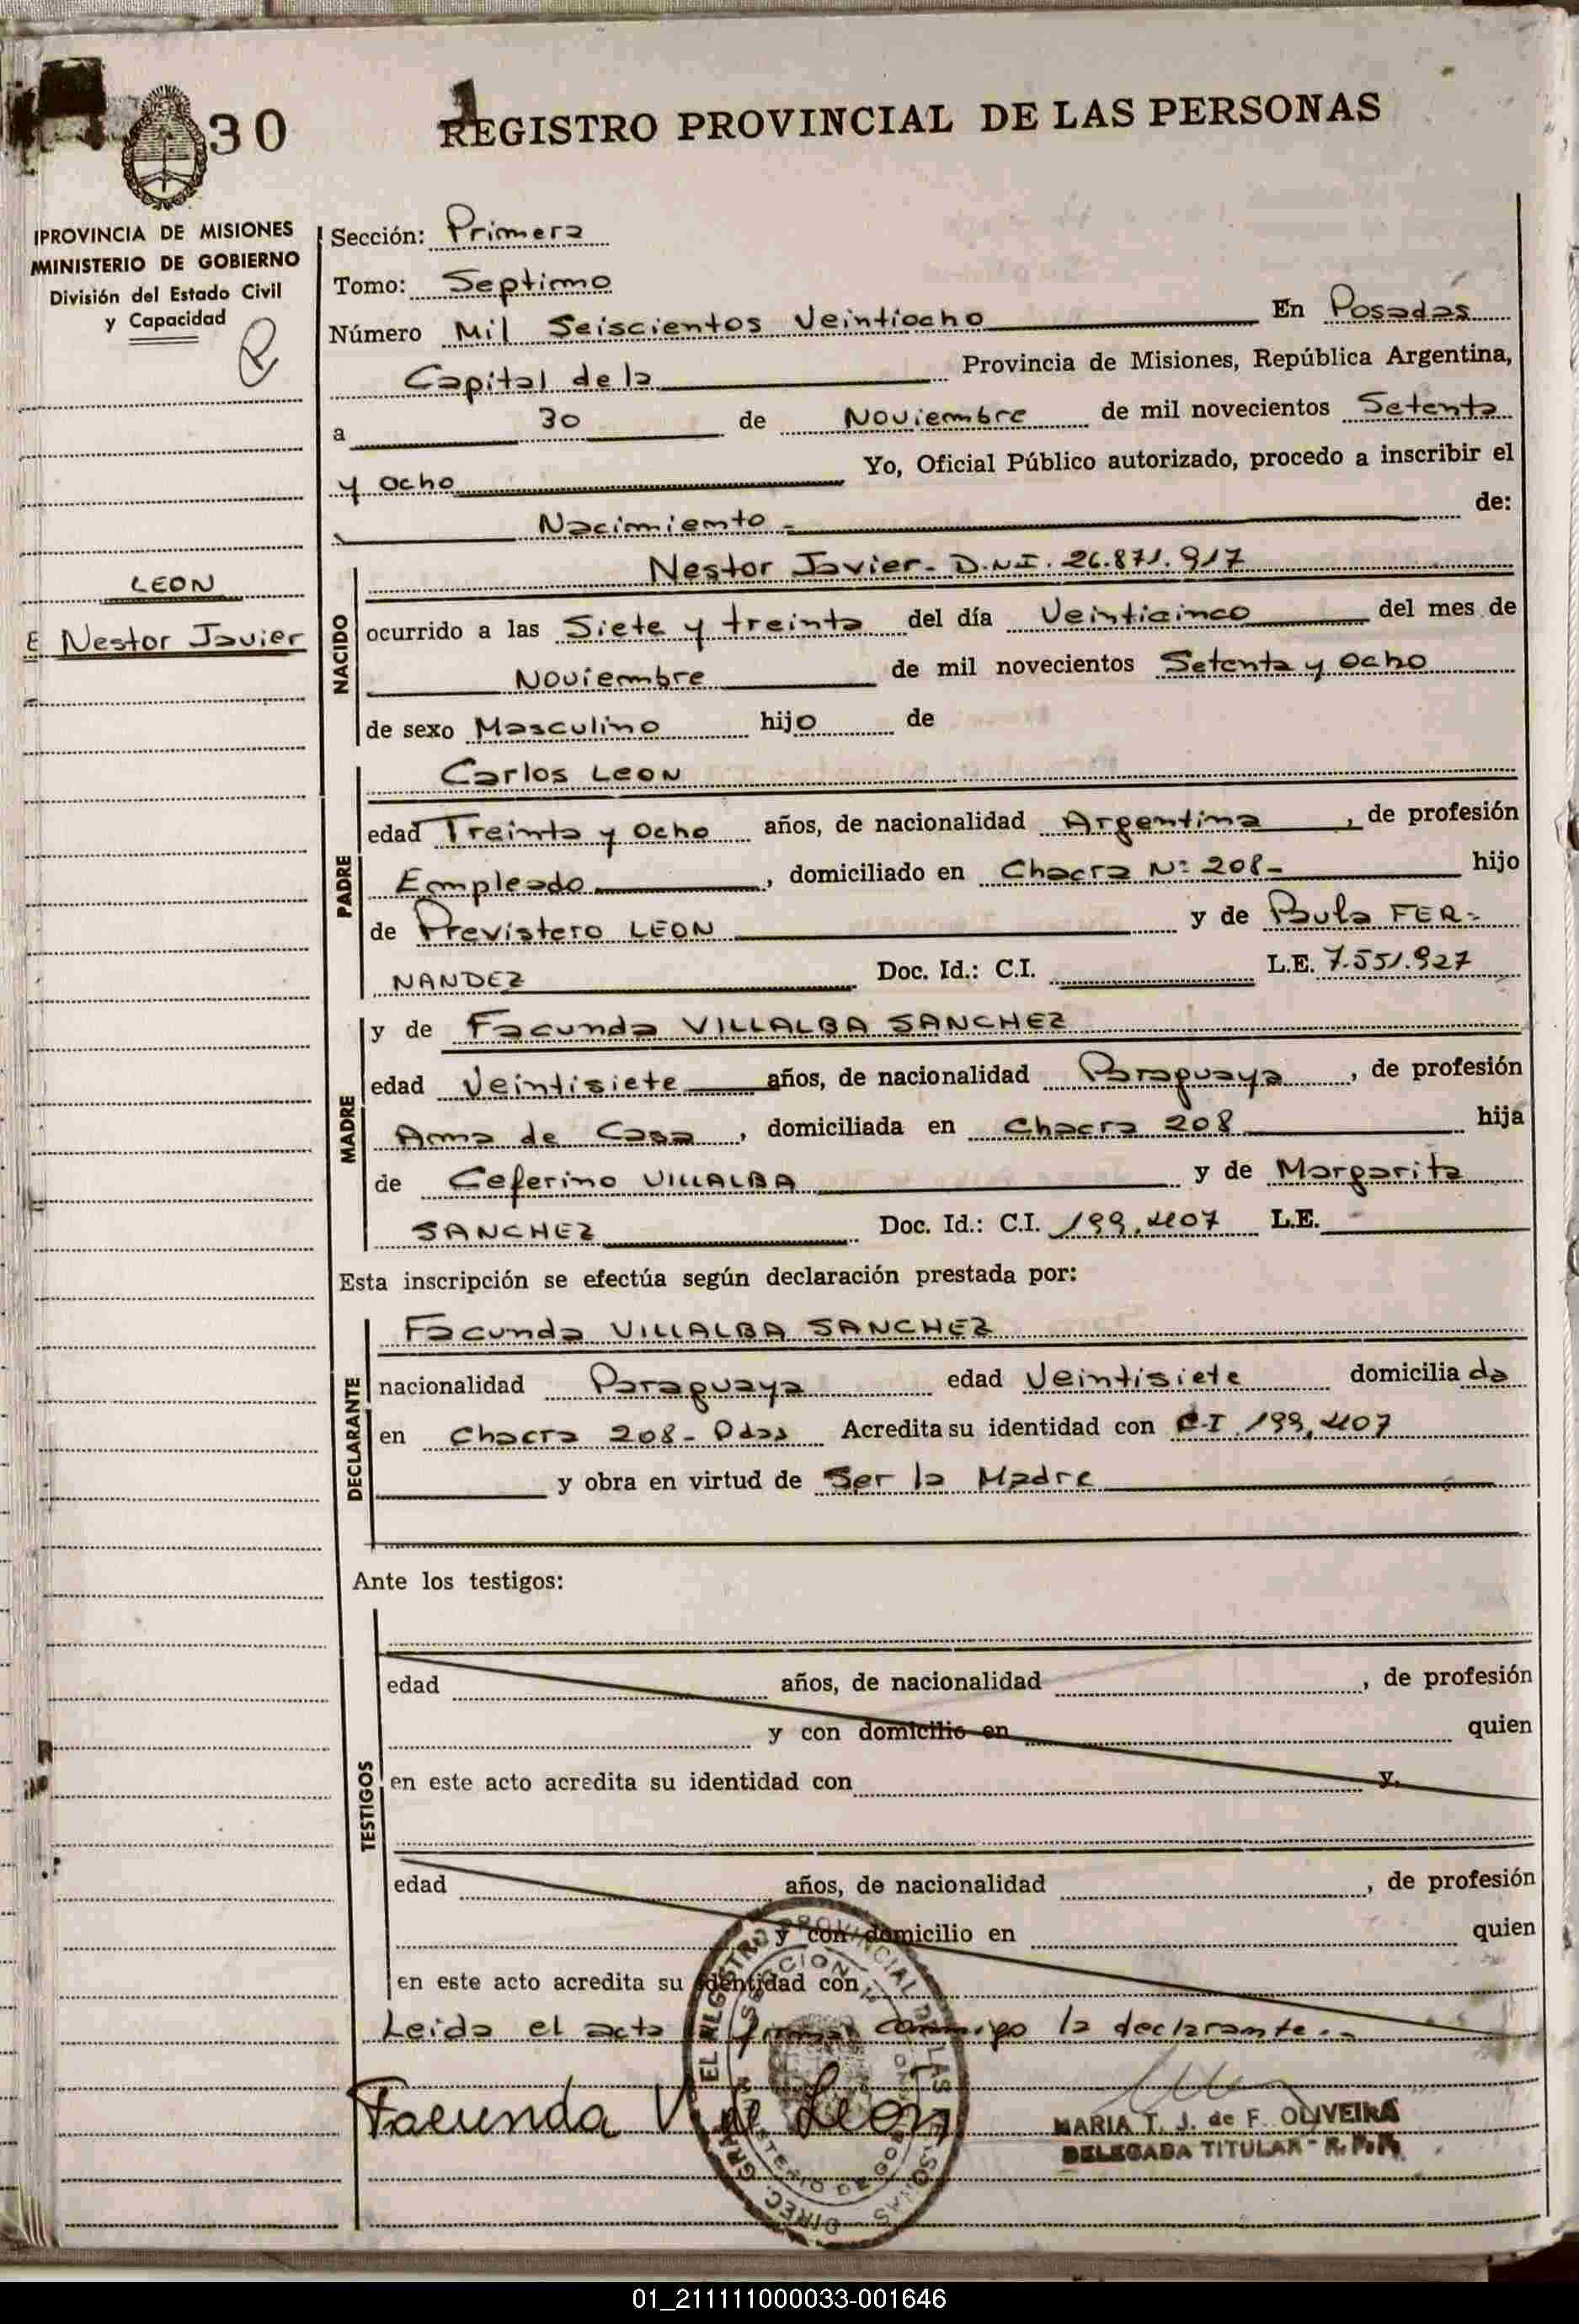 30
REGISTRO PROVINCIAL DE LAS PERSONAS
PROVINCIA DE MISIONES
MINISTERIO DE GOBIERNO
División del Estado Civil
y Capacidad
Sección: Primera
Tomo: Septimo
Número Mil Seiscientos Veintiocho En Posadas
Capital de la Provincia de Misiones, República Argentina,
a 30 de Noviembre de mil novecientos Setenta
y Ocho Yo, Oficial Público autorizado, procedo a inscribir el
Nacimiento - de:
LEON
Nestor Javier
NACIDO
Nestor Javier - D.N.I. 26.871.917
ocurrido a las Siete y treinta del día Veinticinco del mes de
Noviembre de mil novecientos Setenta y Ocho
de sexo Masculino hijo de
PADRE
Carlos LEON
edad Treinta y Ocho años, de nacionalidad Argentina, de profesión
Empleado, domiciliado en Chacra Nº 208- hijo
de Previstero LEON y de Paula FER-
NANDEZ Doc. Id.: C.I. L.E. 7.551.927
MADRE
y de Facunda VILLALBA SANCHEZ
edad Veintisiete años, de nacionalidad Paraguaya, de profesión
Ama de Casa, domiciliada en Chacra 208 hija
de Ceferino VILLALBA y de Margarita
SANCHEZ Doc. Id.: C.I. 199.407 L.E. -
Esta inscripción se efectúa según declaración prestada por:
DECLARANTE
Facunda VILLALBA SANCHEZ
nacionalidad Paraguaya edad Veintisiete domiciliada
en Chacra 208 - Pdas Acredita su identidad con C.I. 199.407
y obra en virtud de Ser la Madre
Ante los testigos:
TESTIGOS
edad años, de nacionalidad , de profesión
y con domicilio en quien
en este acto acredita su identidad con y.
edad años, de nacionalidad , de profesión
y con domicilio en quien
en este acto acredita su identidad con
Leida el acta firma conmigo la declarante.-
Facunda V de Leon
MARIA T. J. de F. OLIVEIRA
DELEGADA TITULAR - R.P.P.
01_211111000033-001646